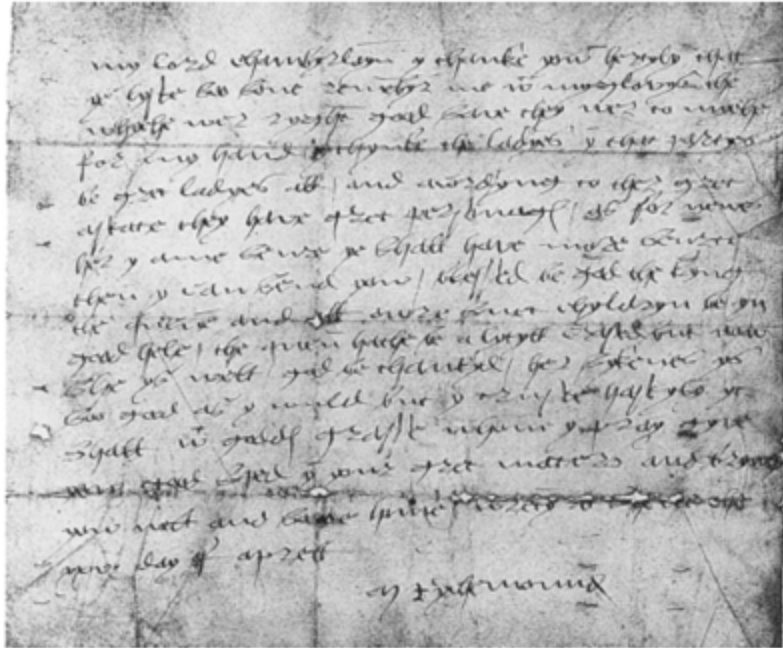 my lord chamberlayn y thanke yow hertyly that
ye lyste soo sone remembyr me w my glovys the
whyche wer ryght good save they wer to myche
for my hand y thynke the ladyes yn that partyes
be gret ladyes all and acordyng to ther gret
astate they have gret personages as for newes
her y ame seure ye shall have more seurte
then y can send yow blessed be god the kyng
the quene and all owre suet chyldryn be yn
good hele the quen hathe be a lytyll crased but now
she ys well god be thankyd her sykenes ys
soo good as y wuld but y truste hastyly yt
shall w goddes grasse whom y pray gyve
yow good sped yn your gret maters and bryng
yow well and soone home wretyn at
day of aprell
M Rychemound